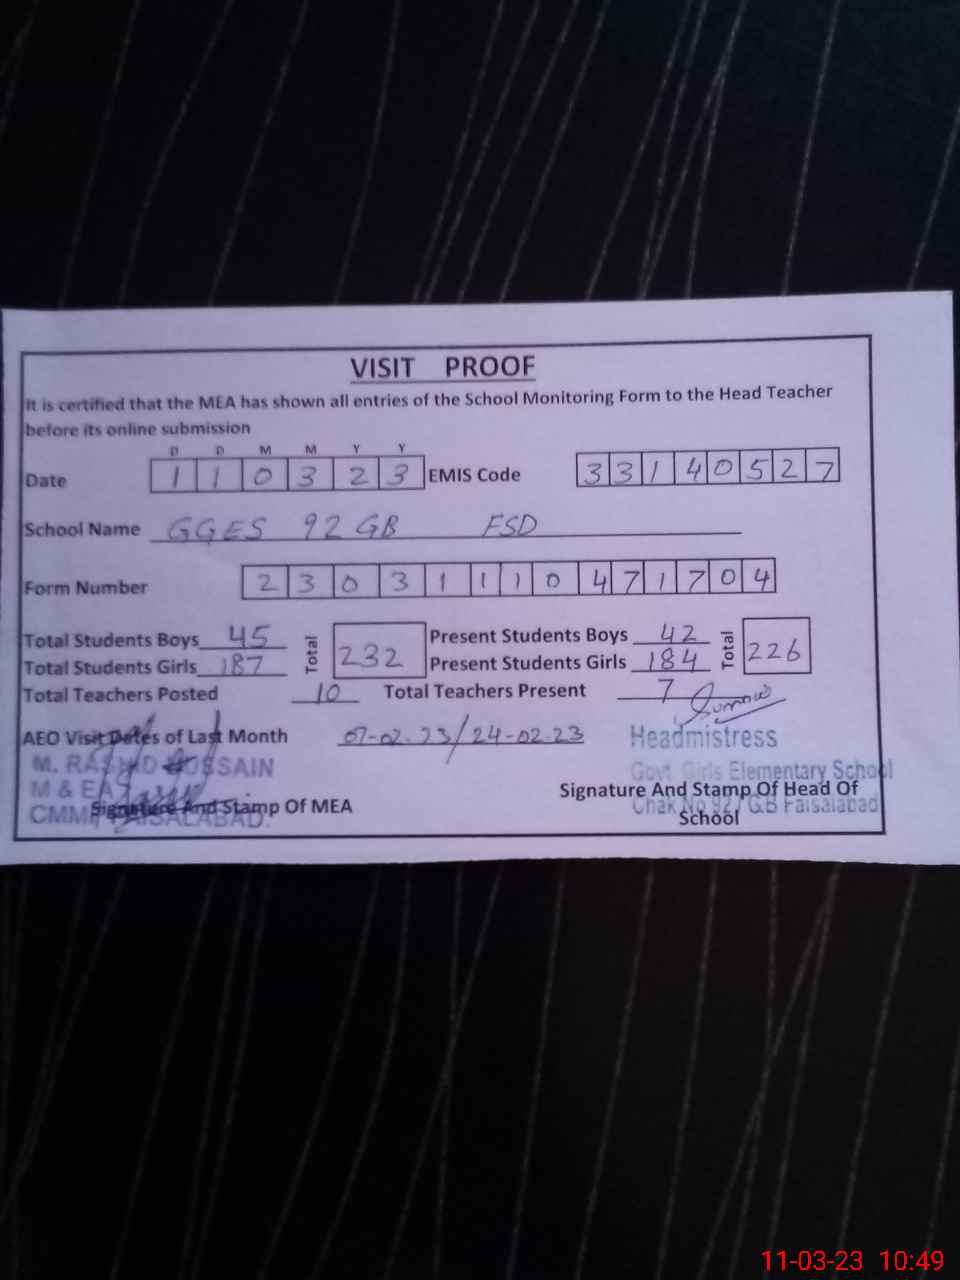 VISIT PROOF
It is certified that the MEA has shown all entries of the School Monitoring Form to the Head Teacher
before its online submission
D D M M Y Y
Date 1 1 0 3 2 3 EMIS Code 3 3 1 4 0 5 2 7
School Name GGES 92 GB FSD
Form Number 2 3 0 3 1 1 1 0 4 7 1 7 0 4
Total Students Boys 45 Total 232 Present Students Boys 42 Total 226
Total Students Girls 187 Present Students Girls 184
Total Teachers Posted 10 Total Teachers Present 7
AEO Visit Dates of Last Month 07-02.23/24-02.23 Headmistress
M. RASHID HUSSAIN Govt. Girls Elementary School
M & EA Signature And Stamp Of Head Of
Signature And Stamp Of MEA School
CMMF FAISALABAD. Chak No 92 / G.B Faisalabad
11-03-23 10:49